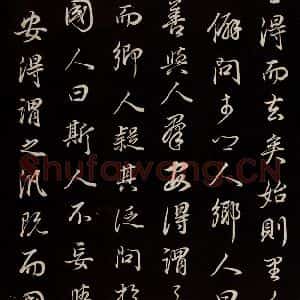 得而去矣始則里人
僻問于鄉人鄉人曰
善與人羣安得謂之
而鄉人疑其泛問於
國人曰斯人不妄
安得謂之汎既而國
Shufawang.CN